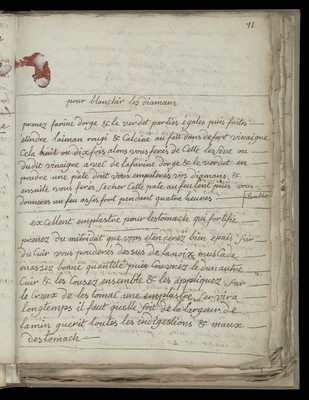 41
pour blanchir les diamans
prenez farine dorge & le verdet parties egales puis faites
eteindre laiman rougi & Calciné au feu dans de fort vinaigre
Cela huit ou dix fois alors vous ferés de Cette lessive ou
dudit vinaigre avec de la farine dorge & le verdet en
poudre une pate dont vous empaterés vos diamans &
ensuite vous ferés secher Cette pate au feu lent puis vous
donnerés un feu assés fort pendant quatre heures
excellent emplastre pour lestomach qui fortifie
prenez du mitridat que vous etenderez bien epais sur
du Cuir vous poudrerés dessus de la noix muscade
en assez bonne quantité puis Couvrez le dun autre
Cuir & les Cousez ensemble & les appliquez sur
le Creux de lestomac une emplastre servira
longtemps il faut quelle soit de la largeur de
lamin guerit toutes les indigestions & maux
destomach